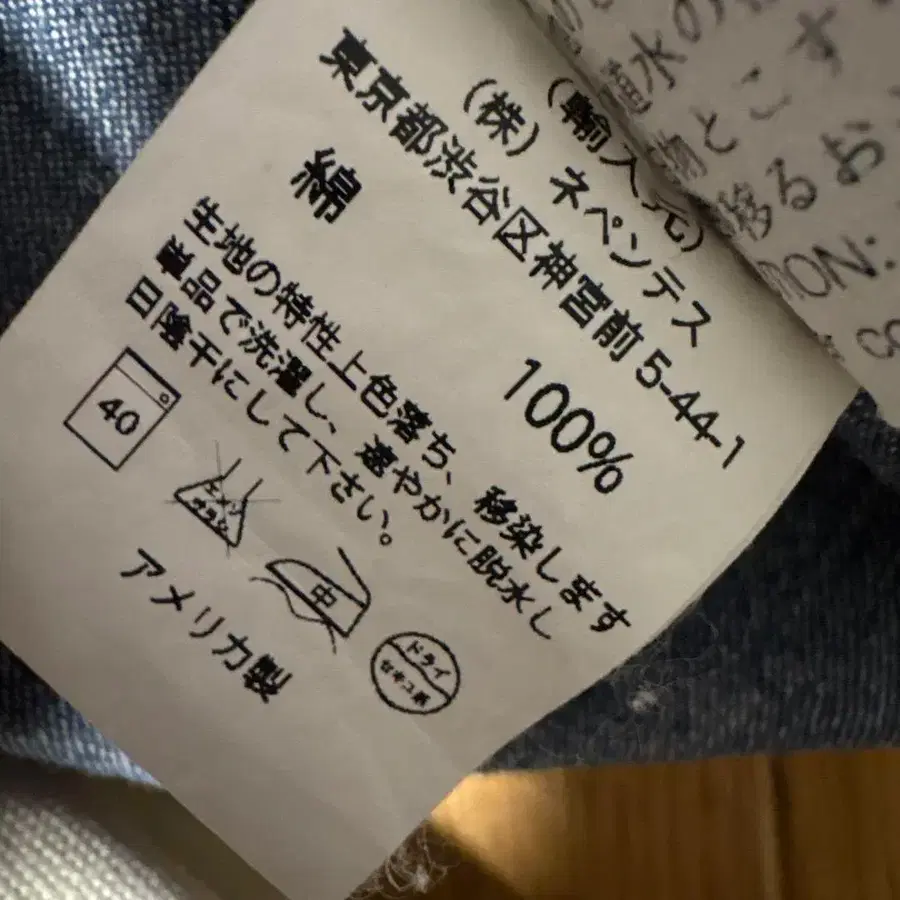 (輸入元)
(株) ネペンテス
東京都渋谷区神宮前 5-44-1
綿 100%
生地の特性上色落ち、移染します
単品で洗濯し、速やかに脱水し
日陰干にして下さい。
40
エンソ
サラシ
中
ドライ
セキユ系
アメリカ製
水の
とこす
移るお
ON: